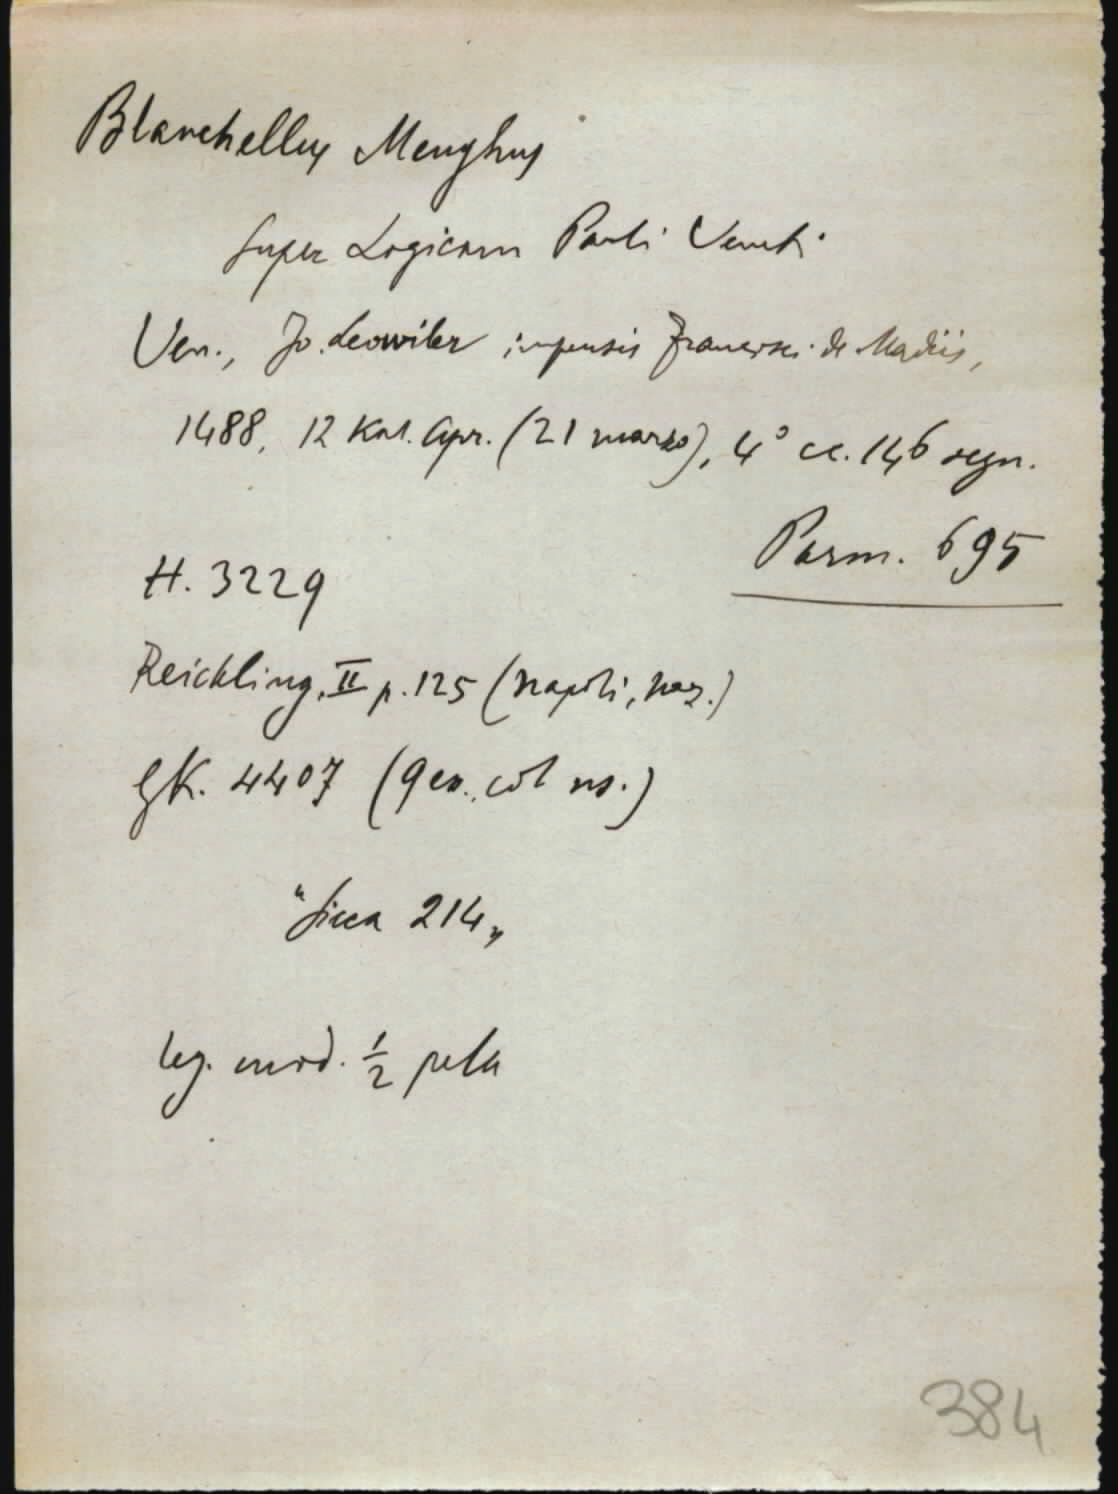 Blanchellus Menghus
Super Logicam Pauli Veneti
Ven., Jo. Leowiler impensis Francisci de Madiis,
1488, 12 Kal. Apr. (21 marzo), 4° cc. 146 segn.
Parm. 695
H. 3229
Reichling, II p. 125 (Napoli, naz.)
GK. 4407 (9 es., col ns.)
"Sicca 214"
leg. mod. ½ pelle
384